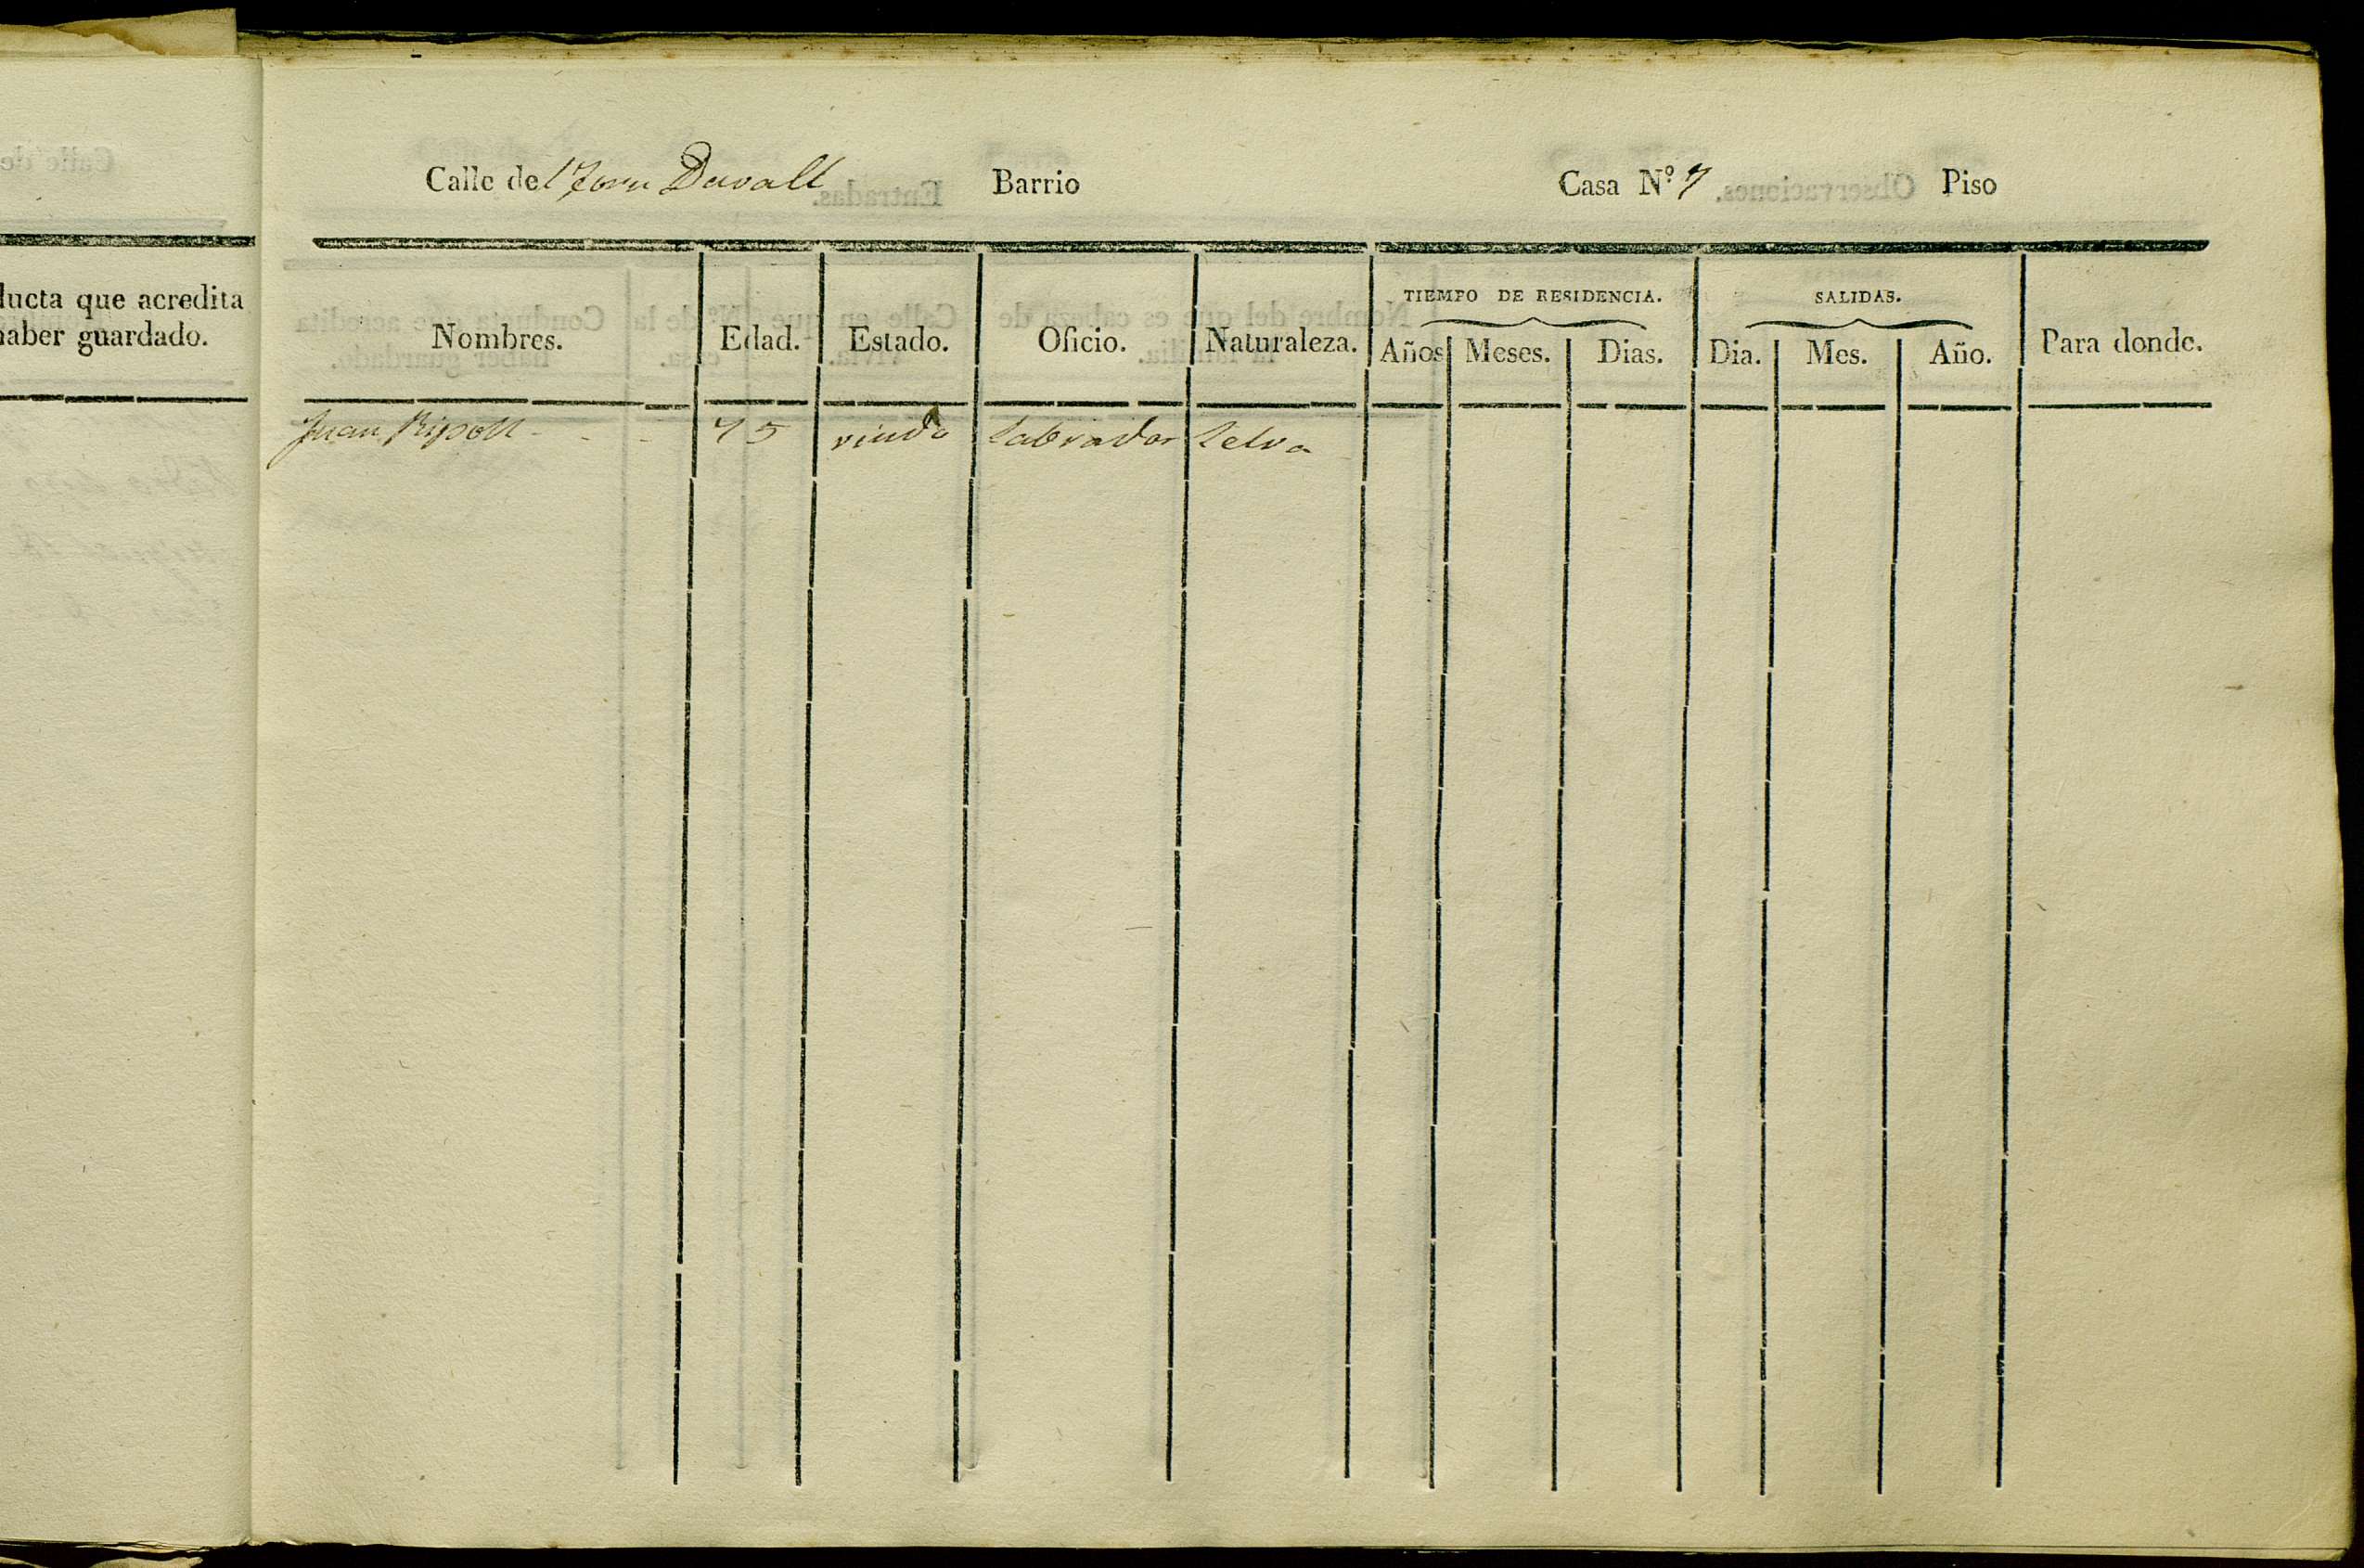 Calle del Forn Davall Barrio Casa N.º 7 Piso
ducta que acredita
haber guardado.
TIEMPO DE RESIDENCIA. SALIDAS.
Nombres. Edad. Estado. Oficio. Naturaleza. Años Meses. Dias. Dia. Mes. Año. Para donde.
Juan Ripoll - - - 75 viudo labrador Selva